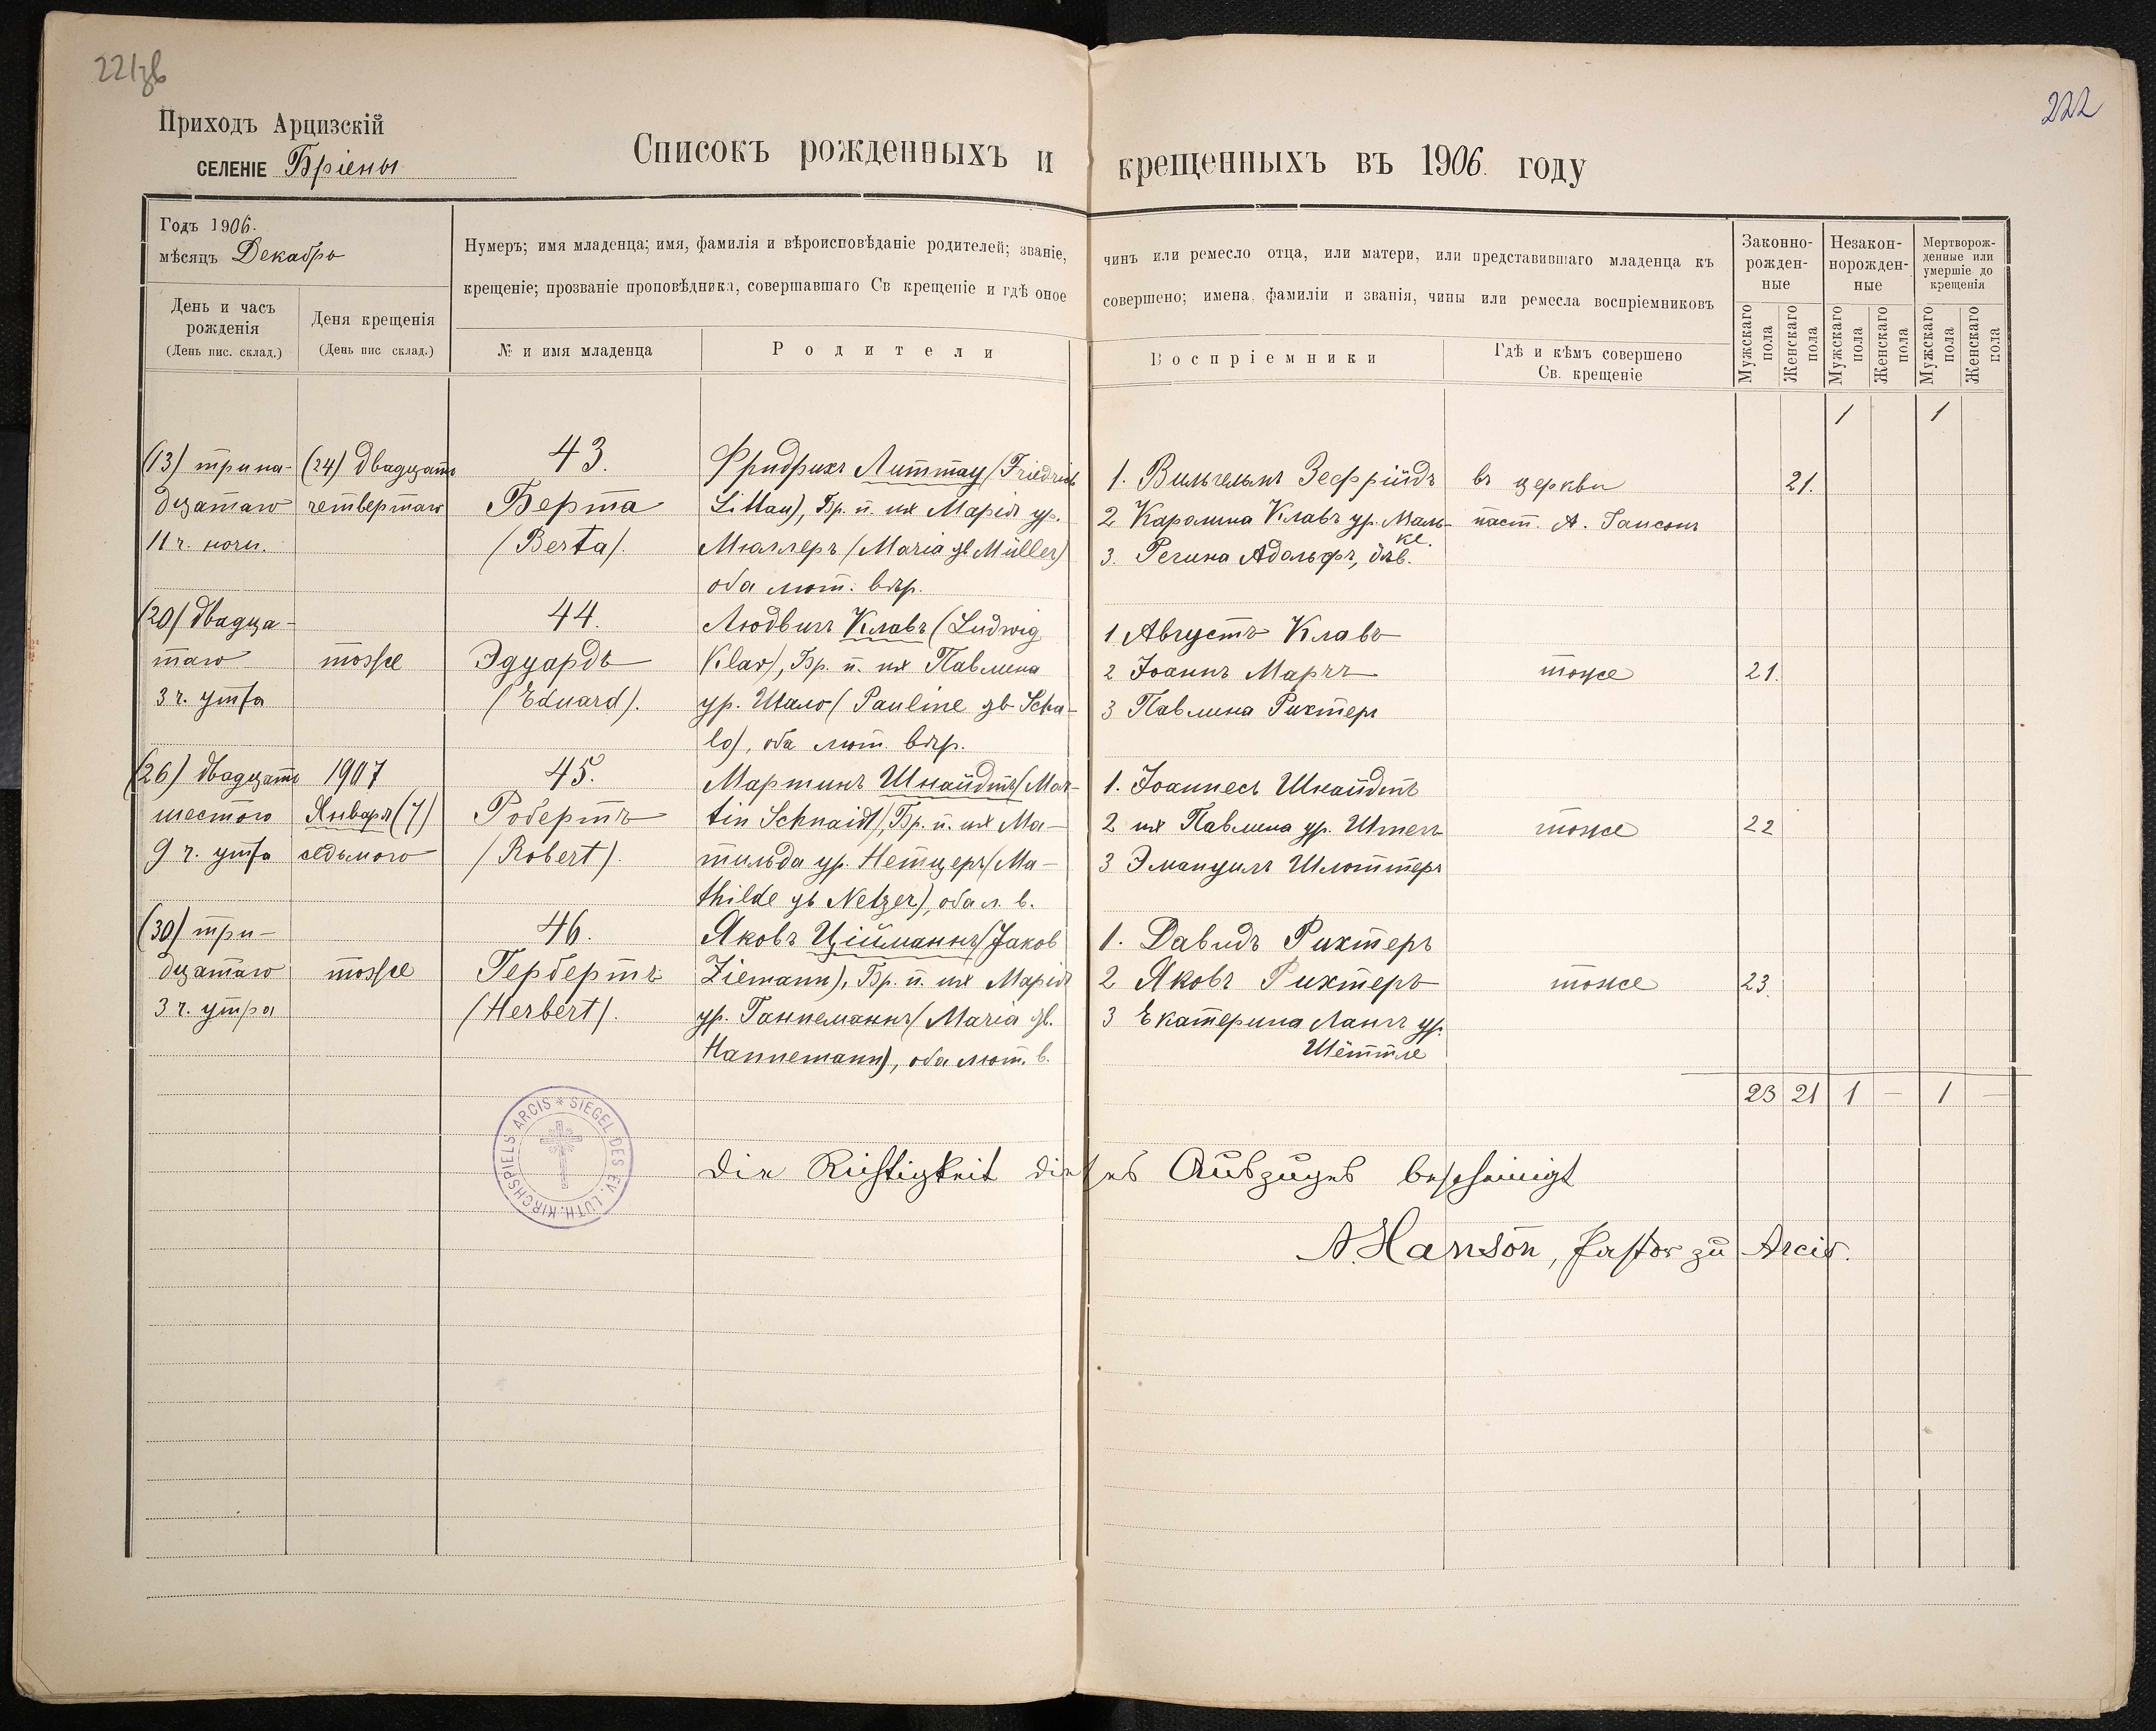 221зв
222
Приходъ Арцизскій
СЕЛЕНІЕ Бріены
Списокъ рожденныхъ и крещенныхъ въ 1906. году
Годъ 1906.
мѣсяцъ Декабрь
Нумеръ; имя младенца; имя, фамилія и вѣроисповѣданіе родителей; званіе, чинъ или ремесло отца, или матери, или представившаго младенца къ
крещеніе; прозваніе проповѣдника, совершавшаго Св крещеніе и гдѣ оное совершено; имена, фамиліи и званія, чины или ремесла воспріемниковъ
День и часъ рожденія
(День пис. склад.)
Деня крещенія
(День пис склад.)
№ и имя младенца
Родители
Воспріемники
Гдѣ и кѣмъ совершено
Св. крещеніе
Законно-
рожден-
ные
Незакон-
норожден-
ные
Мертворож-
денные или
умершіе до
крещенія
Мужскаго пола
Женскаго пола
Мужскаго пола
Женскаго пола
Мужскаго пола
Женскаго пола
1 1
(13) трина-
дцатаго
11 ч. ночи.
(24) двадцать
четвертаго
43.
Берта
(Berta).
Фридрихъ Литтау (Friedrich
Littau), Бр. п. их Марія ур.
Мюллеръ (Maria gb Müller)
оба лют. вѣр.
1. Вильгельмъ Зеффрійдъ
2 Каролина Клавъ ур. Маль-
ке.
3. Регина Адольфъ, дѣв.
въ церкви
паст. А. Гансонъ
21.
(20) двадца-
таго
3 ч. утра
тоже
44.
Эдуардъ
(Eduard).
Людвигъ Клавъ (Ludwig
Klav), Бр. п. их Павлина
ур. Шало (Pauline gb Scha-
lo), оба лют. вѣр.
1 Августъ Клавъ
2 Іоаннъ Маркъ
3 Павлина Рихтеръ
тоже
21.
(26) двадцать
шестого
9 ч. утра
1907
Января (7)
седьмого
45.
Робертъ
(Robert).
Мартинъ Шнайдтъ (Mar-
tin Schnaidt), Бр. п. их Ма-
тильда ур. Нетцеръ (Ma-
thilde gb Netzer), оба л. в.
1. Іоаннесъ Шнайдтъ
2 их Павлина ур. Штегъ
3 Эмануилъ Шлоттеръ
тоже
22
(30) три-
дцатаго
3 ч. утра
тоже
46.
Гербертъ
(Herbert).
Яковъ Ційманнъ (Jakob
Ziemann), Бр. п. их Марія
ур. Ганнеманнъ (Maria gb.
Hannemann), оба лют. в.
1. Давидъ Рихтеръ
2 Яковъ Рихтеръ
3 Екатерина Лангъ ур.
Шёттле
тоже
23.
23 21 1 — 1 —
SIEGEL DES EV. LUTH. KIRCHSPIELS ARCIS *
Die Richtigkeit dieses Auszuges bescheinigt
A. Hanson, Pastor zu Arcis.